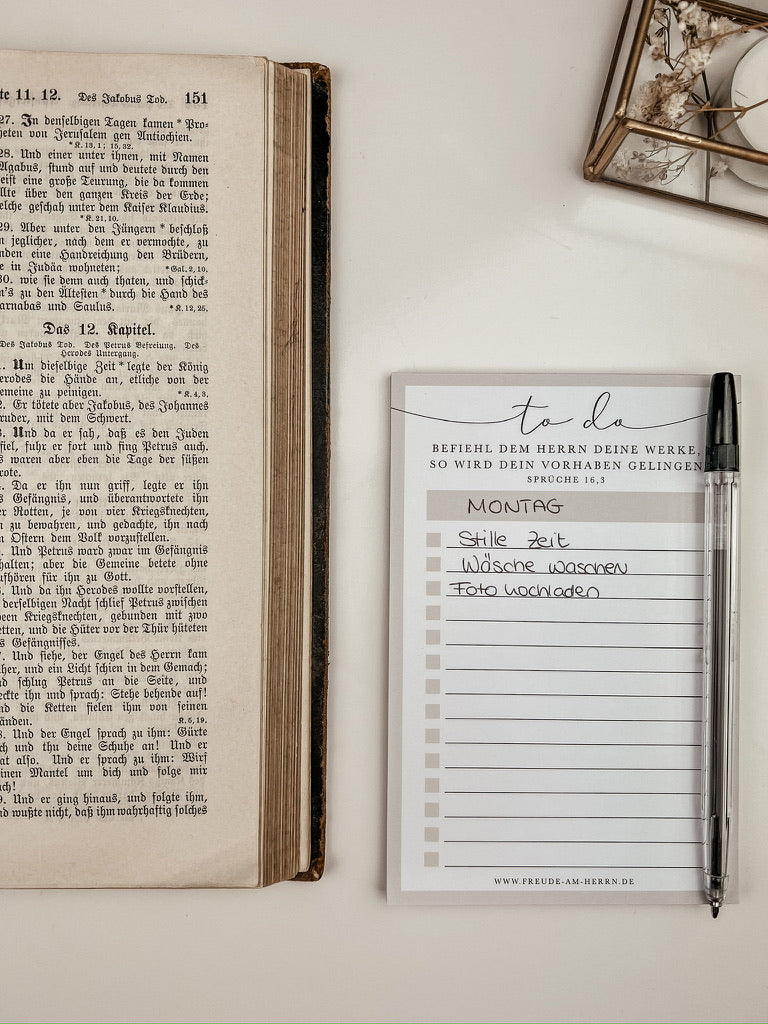 11. 12. Des Jakobus Tod. 151
27. In denselbigen Tagen kamen * Pro-
pheten von Jerusalem gen Antiochien.
* K. 13, 1; 15, 32.
28. Und einer unter ihnen, mit Namen
Agabus, stund auf und deutete durch den
eist eine große Teurung, die da kommen
llte über den ganzen Kreis der Erde;
elche geschah unter dem Kaiser Klaudius.
* K. 21, 10.
29. Aber unter den Jüngern * beschloß
n jeglicher, nach dem er vermochte, zu
nden eine Handreichung den Brüdern,
e in Judäa wohneten; * Gal. 2, 10.
30. wie sie denn auch thaten, und schick-
n's zu den Ältesten * durch die Hand des
arnabas und Saulus. * K. 12, 25.
Das 12. Kapitel.
Des Jakobus Tod. Des Petrus Befreiung. Des
Herodes Untergang.
. Um dieselbige Zeit * legte der König
erodes die Hände an, etliche von der
emeine zu peinigen. * K. 4, 3.
2. Er tötete aber Jakobus, des Johannes
ruder, mit dem Schwert.
3. Und da er sah, daß es den Juden
fiel, fuhr er fort und fing Petrus auch.
s waren aber eben die Tage der süßen
rote.
. Da er ihn nun griff, legte er ihn
s Gefängnis, und überantwortete ihn
er Rotten, je von vier Kriegsknechten,
n zu bewahren, und gedachte, ihn nach
n Ostern dem Volk vorzustellen.
. Und Petrus ward zwar im Gefängnis
halten; aber die Gemeine betete ohne
ufhören für ihn zu Gott.
. Und da ihn Herodes wollte vorstellen,
derselbigen Nacht schlief Petrus zwischen
ween Kriegsknechten, gebunden mit zwo
etten, und die Hüter vor der Thür hüteten
s Gefängnisses.
7. Und siehe, der Engel des Herrn kam
her, und ein Licht schien in dem Gemach;
nd schlug Petrus an die Seite, und
eckte ihn und sprach: Stehe behende auf!
nd die Ketten fielen ihm von seinen
änden. K. 5, 19.
8. Und der Engel sprach zu ihm: Gürte
ch und thu deine Schuhe an! Und er
at also. Und er sprach zu ihm: Wirf
einen Mantel um dich und folge mir
ach!
9. Und er ging hinaus, und folgte ihm,
nd wußte nicht, daß ihm wahrhaftig solches
to do
BEFIEHL DEM HERRN DEINE WERKE,
SO WIRD DEIN VORHABEN GELINGEN
SPRÜCHE 16,3
MONTAG
Stille Zeit
Wäsche waschen
Foto hochladen
WWW.FREUDE-AM-HERRN.DE